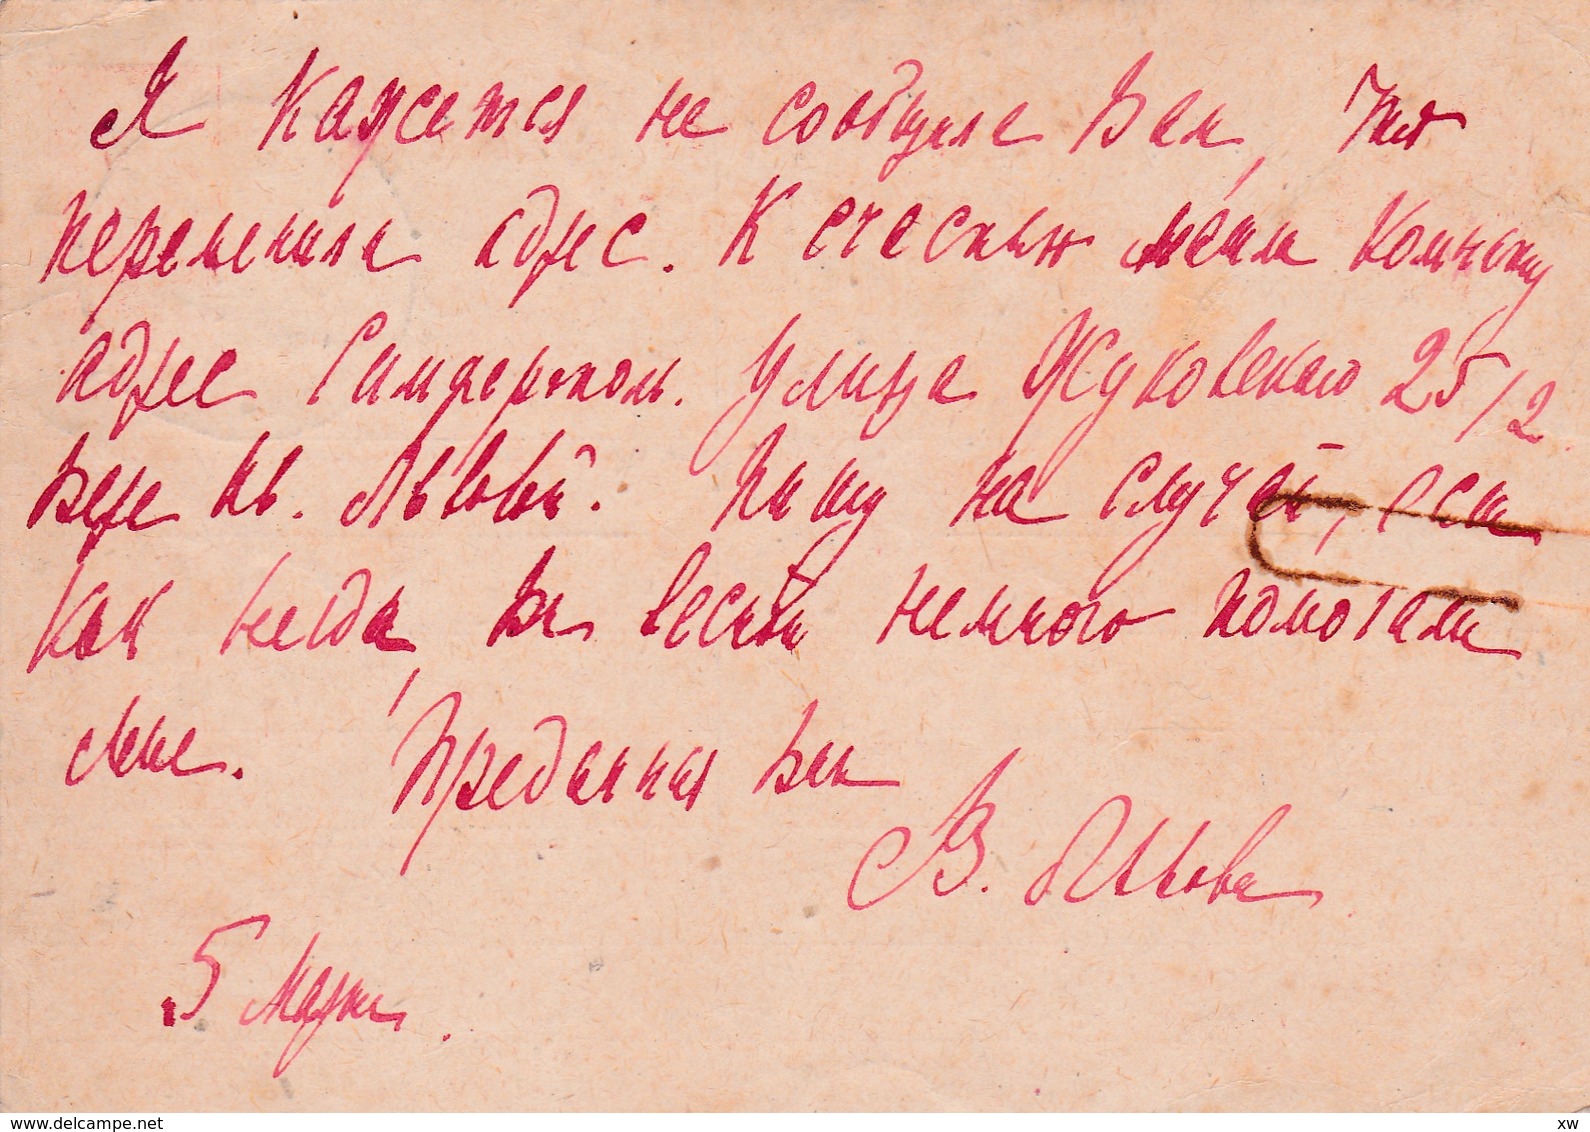 Я кажется не сообщила Вам, что
переменила адрес. К счастью меняла комнату
адрес Симферополь. Улица Жуковского 25/2
Вере Кн. Львовой. Пишу на случай, если
как всегда, Вы весной немного помогали
мне. Преданная Вам
В. Львова
5 Марта.
www.delcampe.net
xw